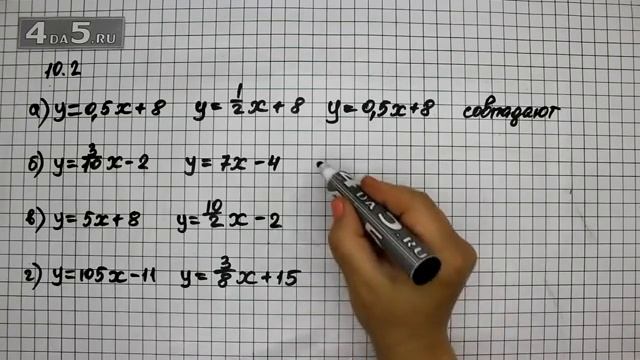 4DA5.RU
10.2
а) y=0,5x+8 y=1/2x+8 y=0,5x+8 совпадают
б) y=3/10x-2 y=7x-4
в) y=5x+8 y=10/2x-2
г) y=105x-11 y=3/8x+15